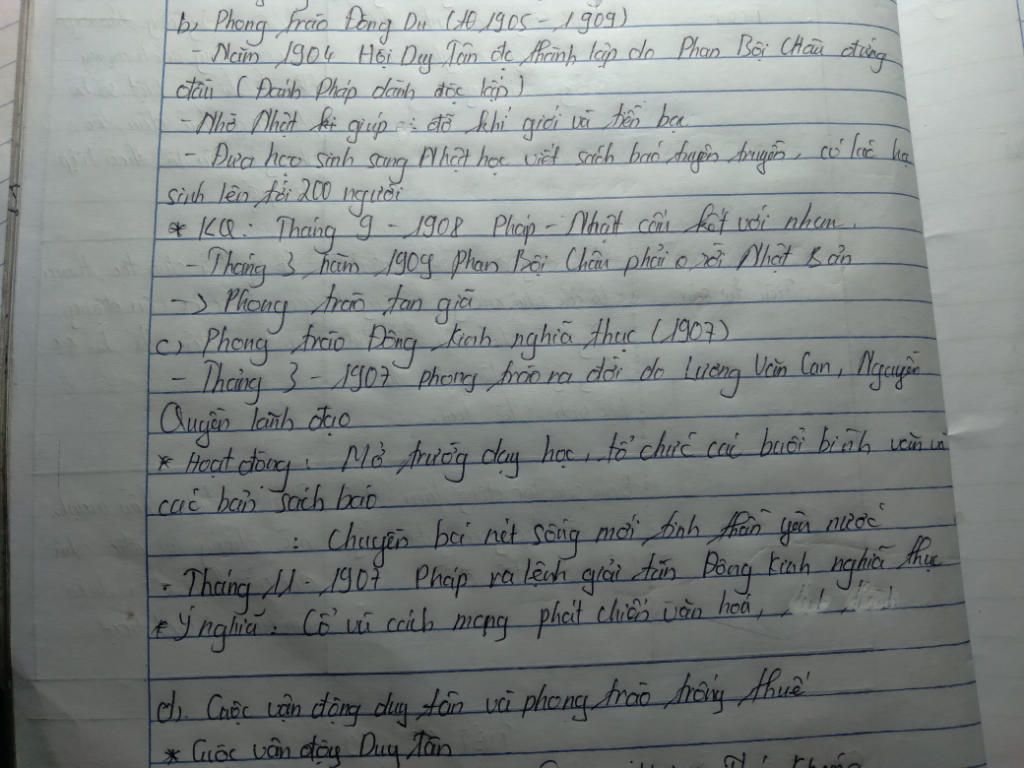 b) Phong trào Đông Du (1905 - 1909)
- Năm 1904 Hội Duy Tân đc thành lập do Phan Bội Châu đứng
đầu (Đánh Pháp dành độc lập)
- Nhờ Nhật giúp đỡ khí giới và tiền bạc
- Đưa học sinh sang Nhật học viết sách báo tuyên truyền, có lúc học
sinh lên tới 200 người
* KQ: Tháng 9 - 1908 Pháp - Nhật cấu kết với nhau.
- Tháng 3 năm 1909 Phan Bội Châu phải rời Nhật Bản
-> Phong trào tan giã
c) Phong trào Đông kinh nghĩa thục (1907)
- Tháng 3 - 1907 phong trào ra đời do Lương Văn Can, Nguyễn
Quyền lãnh đạo
* Hoạt động: Mở trường dạy học, tổ chức các buổi bình văn và
các bản sách báo
: Chuyền bá nét sống mới tinh thần yêu nước
- Tháng 11 - 1907 Pháp ra lệnh giải tán Đông kinh nghĩa thục
* Ý nghĩa: Cổ vũ cách mạng phát chiển văn hoá,
d). Cuộc vận động duy tân và phong trào trống thuế
* Cuộc vận động Duy Tân